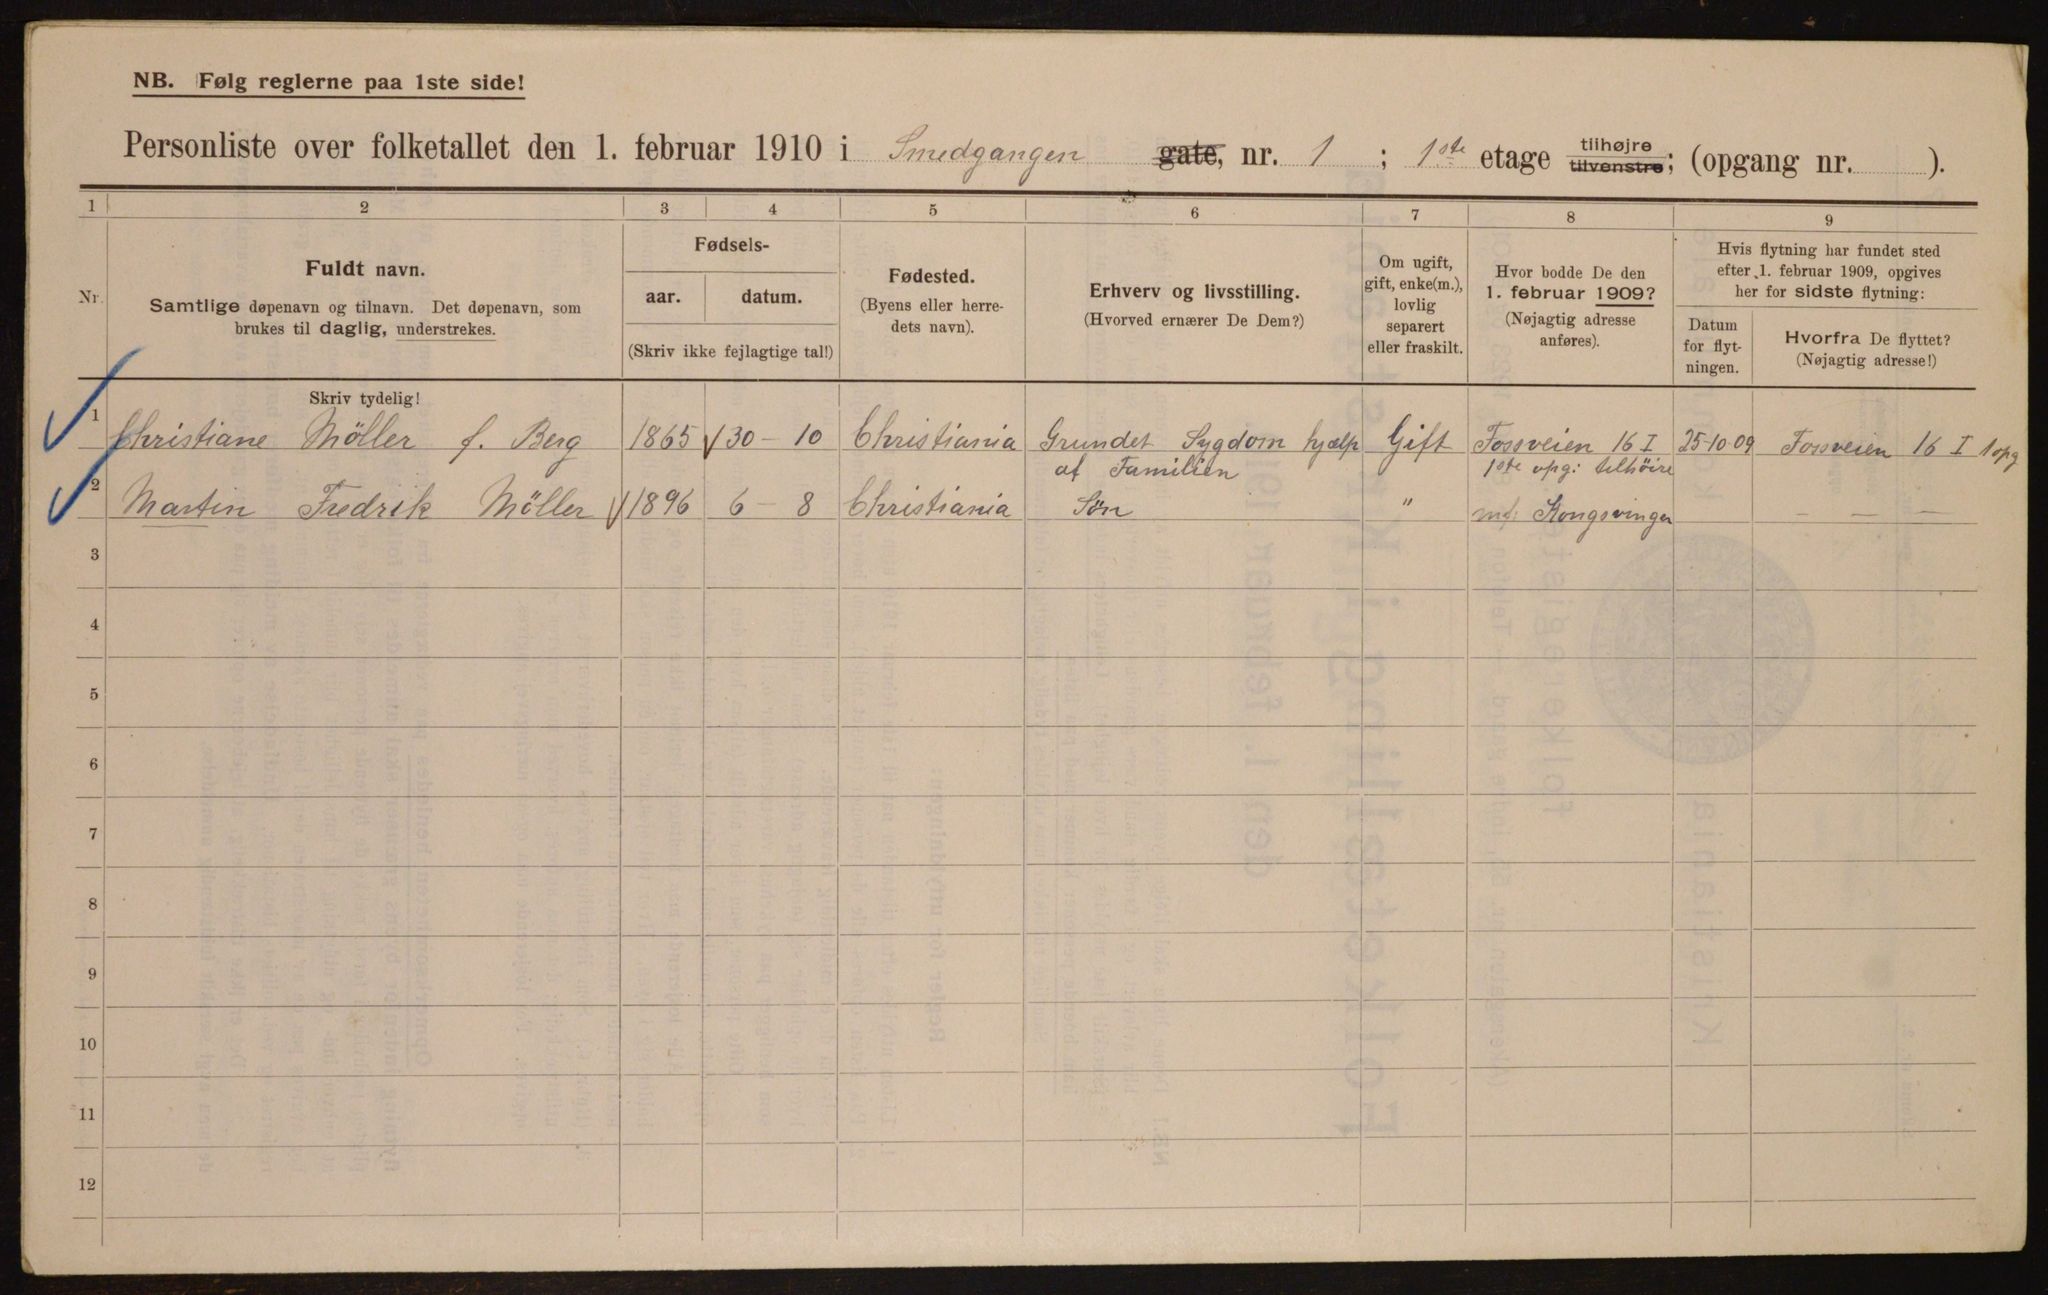 NB. Følg reglerne paa 1ste side!
Personliste over folketallet den 1. februar 1910 i Smedgangen gate, nr. 1 ; 1ste etage tilhøjre tilvenstre; (opgang nr. ).
1 2 3 4 5 6 7 8 9
Nr.
Fuldt navn.
Samtlige døpenavn og tilnavn. Det døpenavn, som
brukes til daglig, understrekes.
Fødsels-
aar. datum.
(Skriv ikke fejlagtige tal!)
Fødested.
(Byens eller herre-
dets navn).
Erhverv og livsstilling.
(Hvorved ernærer De Dem?)
Om ugift,
gift, enke(m.),
lovlig
separert
eller fraskilt.
Hvor bodde De den
1. februar 1909?
(Nøjagtig adresse
anføres).
Hvis flytning har fundet sted
efter 1. februar 1909, opgives
her for sidste flytning:
Datum
for flyt-
ningen.
Hvorfra De flyttet?
(Nøjagtig adresse!)
Skriv tydelig!
1 Christiane Möller f. Berg 1865 30 - 10 Christiania Grundet Sygdom hjælp Gift Fossveien 16 I 25-10-09 Fossveien 16 I 1 opg
af Familien 1ste opg: tilhöire
2 Martin Fredrik Möller 1896 6 - 8 Christiania Sön " Kongsvinger — — —
3
4
5
6
7
8
9
10
11
12